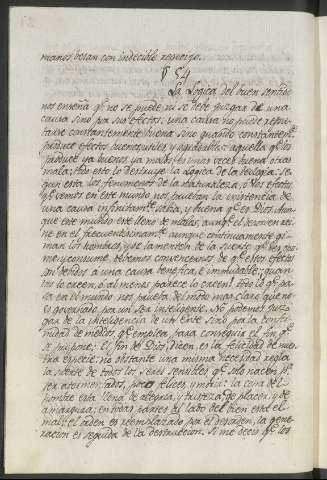 manos besan con indecible regocijo.
§ 54
La Logica del buen sentido
nos enseña q.e no se puede ni se debe juzgar de una
causa sino por sus efectos. una causa no puede repu-
tarse constantemente buena sino quando constantem.te
produce efectos buenos utiles y agradables: aquella q.e los
produce ya buenos ya malos, es unas veces buena otras
mala; todo esto lo destruye la Logica de la teologia. Se-
gun esta los fenomenos de la naturaleza, ó los efectos
q.e vemos en este mundo nos prueban la existencia de
una causa infinitam.te sabia, y buena q.e es Dios: aun-
que este mundo esté lleno de males, aunq.e el desorden rei-
ne en él frecuentisimam.te aunque continuamente gi-
man los hombres, y se lamenten de la suerte q.e los opri-
me y consume, debemos convencernos de q.e estos efectos
son debidos á una causa benefica, é inmudable; quan-
tos lo creen, ó al menos parece lo creen! Todo lo q.e pa-
sa en el mundo nos prueba del modo mas claro que no
es governado por un Ser inteligente. No podemos juz-
gar de la inteligencia de un Ente sino por la confor-
midad de medios q.e emplea para conseguir el fin q.e
se propone. El fin de Dios, dicen, es la felicidad de nues-
tra especie: no obstante una misma necesidad regla
la suerte de todos los seres sensibles q.e solo nacen p.a
ser atormentados, poco felices y morir: la copa del
hombre esta llena de alegria, y tristeza, de placer, y de
amargura; en todas partes al lado del bien está el
mal: el orden es reemplazado por el desorden, la gene-
racion es seguida de la destruccion. Si me decis q.e los